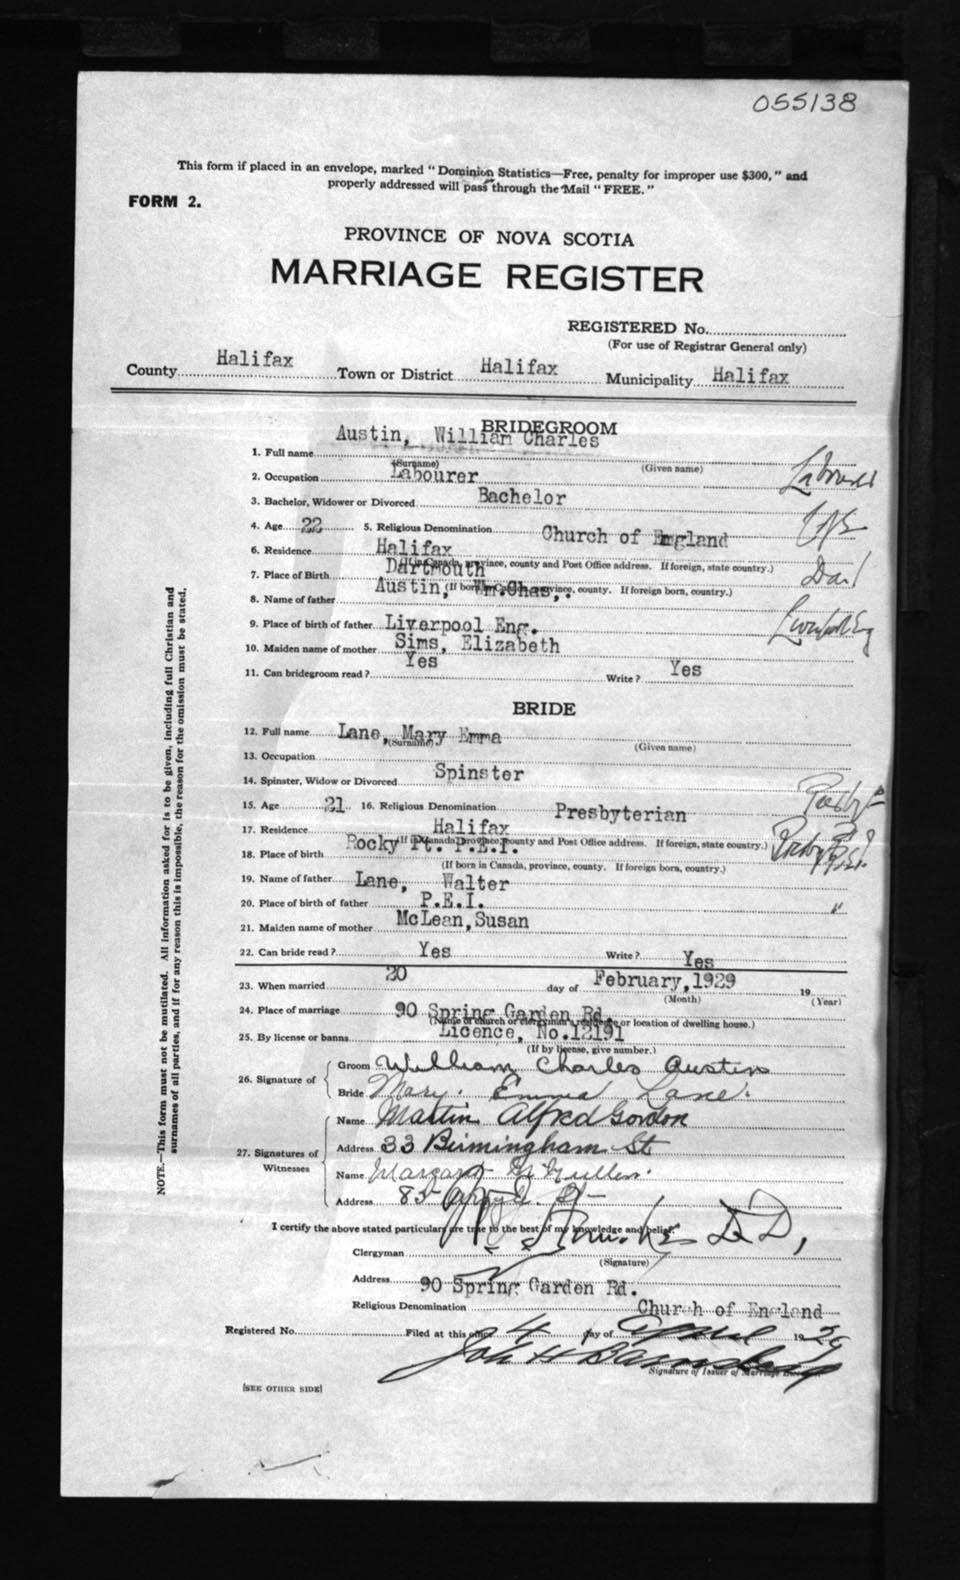 055138
This form if placed in an envelope, marked "Dominion Statistics—Free, penalty for improper use $300," and
properly addressed will pass through the Mail "FREE."
FORM 2.
PROVINCE OF NOVA SCOTIA
MARRIAGE REGISTER
REGISTERED No.
(For use of Registrar General only)
County Halifax Town or District Halifax Municipality Halifax
BRIDEGROOM
1. Full name Austin, William Charles
(Surname) (Given name)
2. Occupation Labourer Labourer
3. Bachelor, Widower or Divorced Bachelor
4. Age 22 5. Religious Denomination Church of England
6. Residence Halifax
(If in Canada, province, county and Post Office address. If foreign, state country.)
7. Place of Birth Dartmouth Dar
(If born in Canada, province, county. If foreign born, country.)
8. Name of father Austin, Wm.Chas,.
9. Place of birth of father Liverpool Eng. Liverpool Eng
10. Maiden name of mother Sims, Elizabeth
11. Can bridegroom read? Yes Write? Yes
BRIDE
12. Full name Lane, Mary Emma
(Surname) (Given name)
13. Occupation
14. Spinster, Widow or Divorced Spinster
15. Age 21 16. Religious Denomination Presbyterian
17. Residence Halifax
(If in Canada, province, county and Post Office address. If foreign, state country.)
18. Place of birth Rocky Pt. P.E.I.
(If born in Canada, province, county. If foreign born, country.)
19. Name of father Lane, Walter
20. Place of birth of father P.E.I. "
21. Maiden name of mother McLean,Susan
22. Can bride read? Yes Write? Yes
23. When married 20 day of February,1929 19
(Month) (Year)
24. Place of marriage 90 Spring Garden Rd.
(Name of church or clergyman's residence or location of dwelling house.)
25. By license or banns Licence, No.12191
(If by license, give number.)
26. Signature of Groom William Charles Austin
Bride Mary Emma Lane.
27. Signatures of Witnesses Name Martin Alfred Gordon
Address 33 Birmingham St
Name Margaret
Address 85 St
I certify the above stated particulars are true to the best of my knowledge and belief.
Clergyman D D,
(Signature)
Address 90 Spring Garden Rd.
Religious Denomination Church of England
Registered No. Filed at this office 4 day of April 1929
Signature of Issuer of Marriage
[SEE OTHER SIDE]
NOTE.—This form must not be mutilated. All information asked for is to be given, including full Christian and
surnames of all parties, and if for any reason this is impossible, the reason for the omission must be stated.